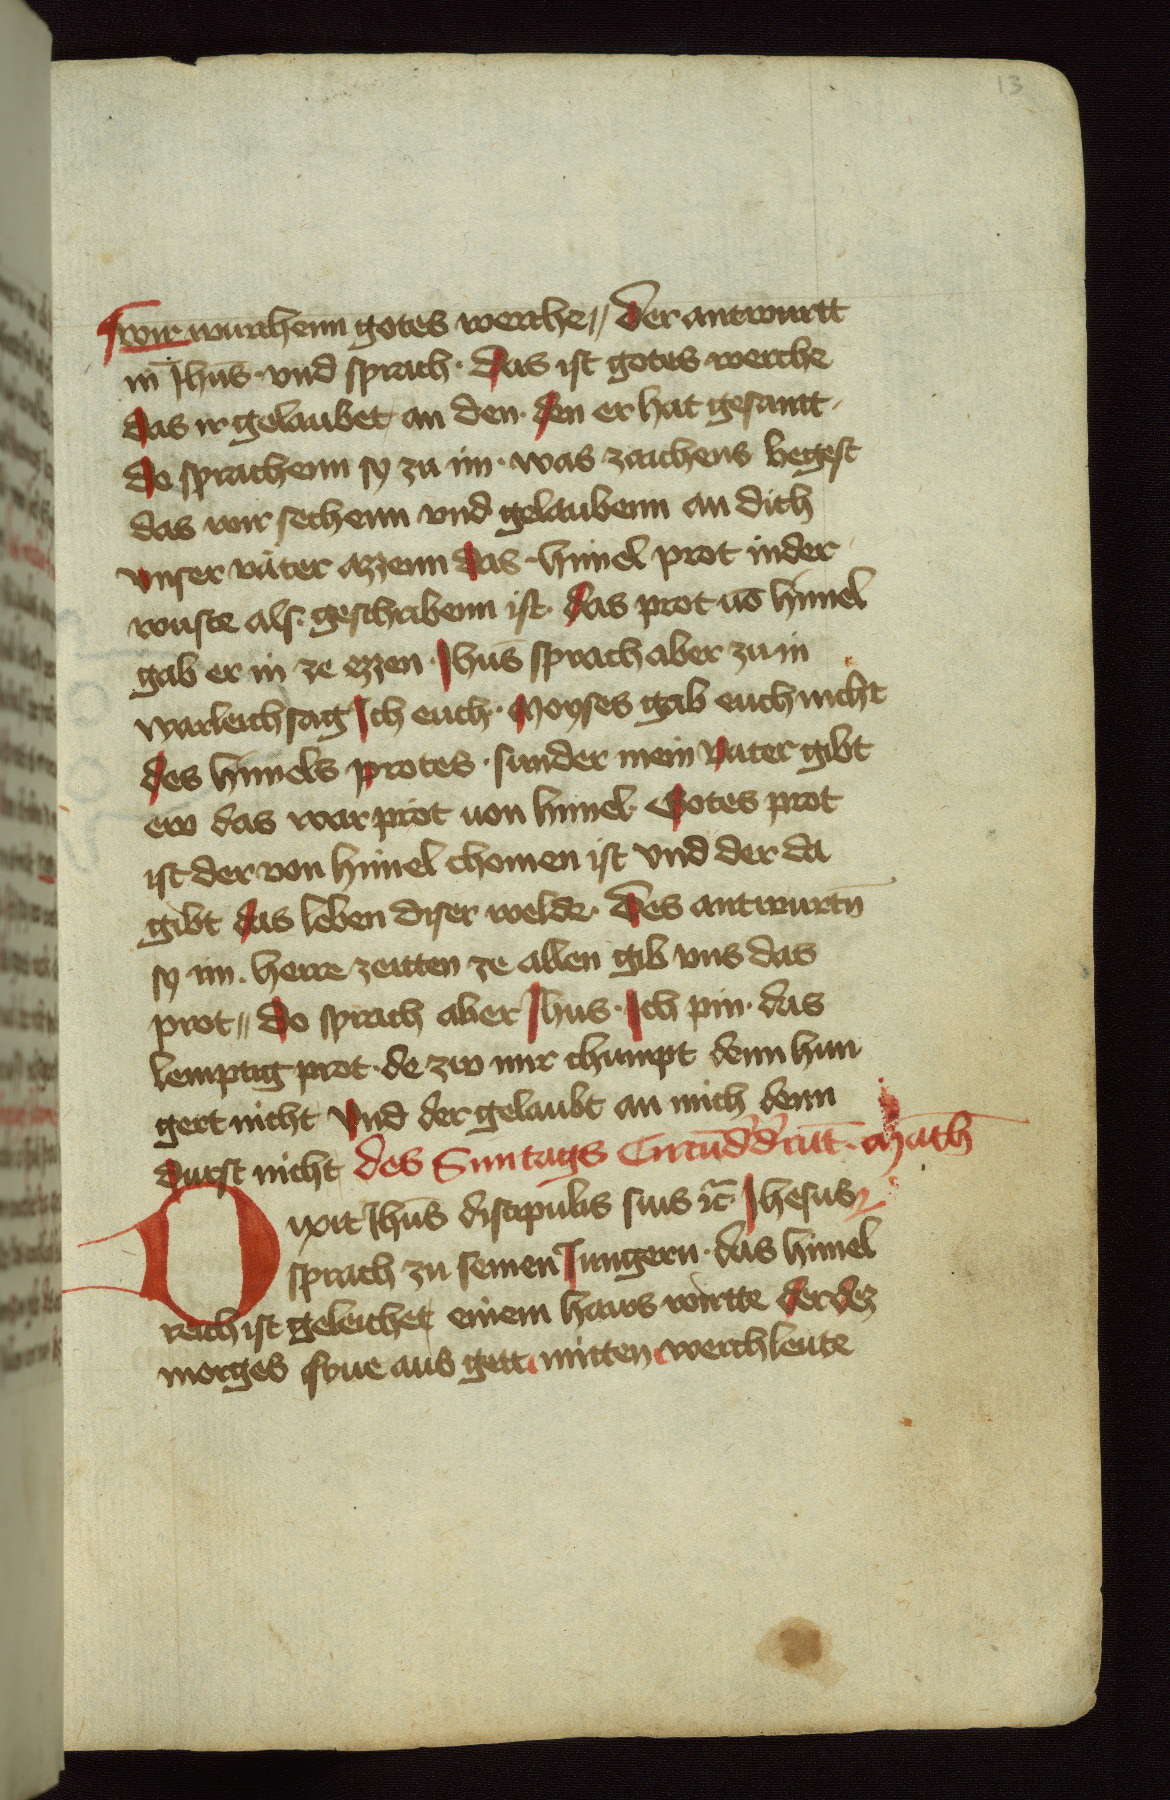 13
wir wurchenn gotes werche // Der antwurtt
in̄ Jhus̄ · vnd sprach · Das ist gotes werche
das ir gelaubet an den · den er hat gesantt ·
do sprachenn sy zu im · was zaichens begest
das wir sechenn vnd gelaubenn an dich
vnser väter azzenn das · himel prot in der
wuste als · geschribenn ist · das prot uō himel
gab er in ze ezzen · Jhus̄ sprach aber zu in
warleich sag Ich euch · Moyses gab euch nicht
des himels protes · sunder mein vater gibt
ew das war prot uon himel · Gotes prot
ist der von himel chomen ist vnd der da
gibt das leben diser welde · Des antwurtn̄
sy im · herre zeitten ze allen gib vns das
prot // Do sprach aber Jhus · Ich pin · das
lemptig prot · de zw mir chumpt denn hun
gert nicht vnd der gelaubt an mich denn
durst nicht des Suntags Circūdederūt · Math
Dixit Jhus̄ discipulis suis rc̄ Jhesus
sprach zu seinen Jungern · das himel
reich ist geleichet einem haws wirtte der dez
morges frue aus gett mitten werchleute